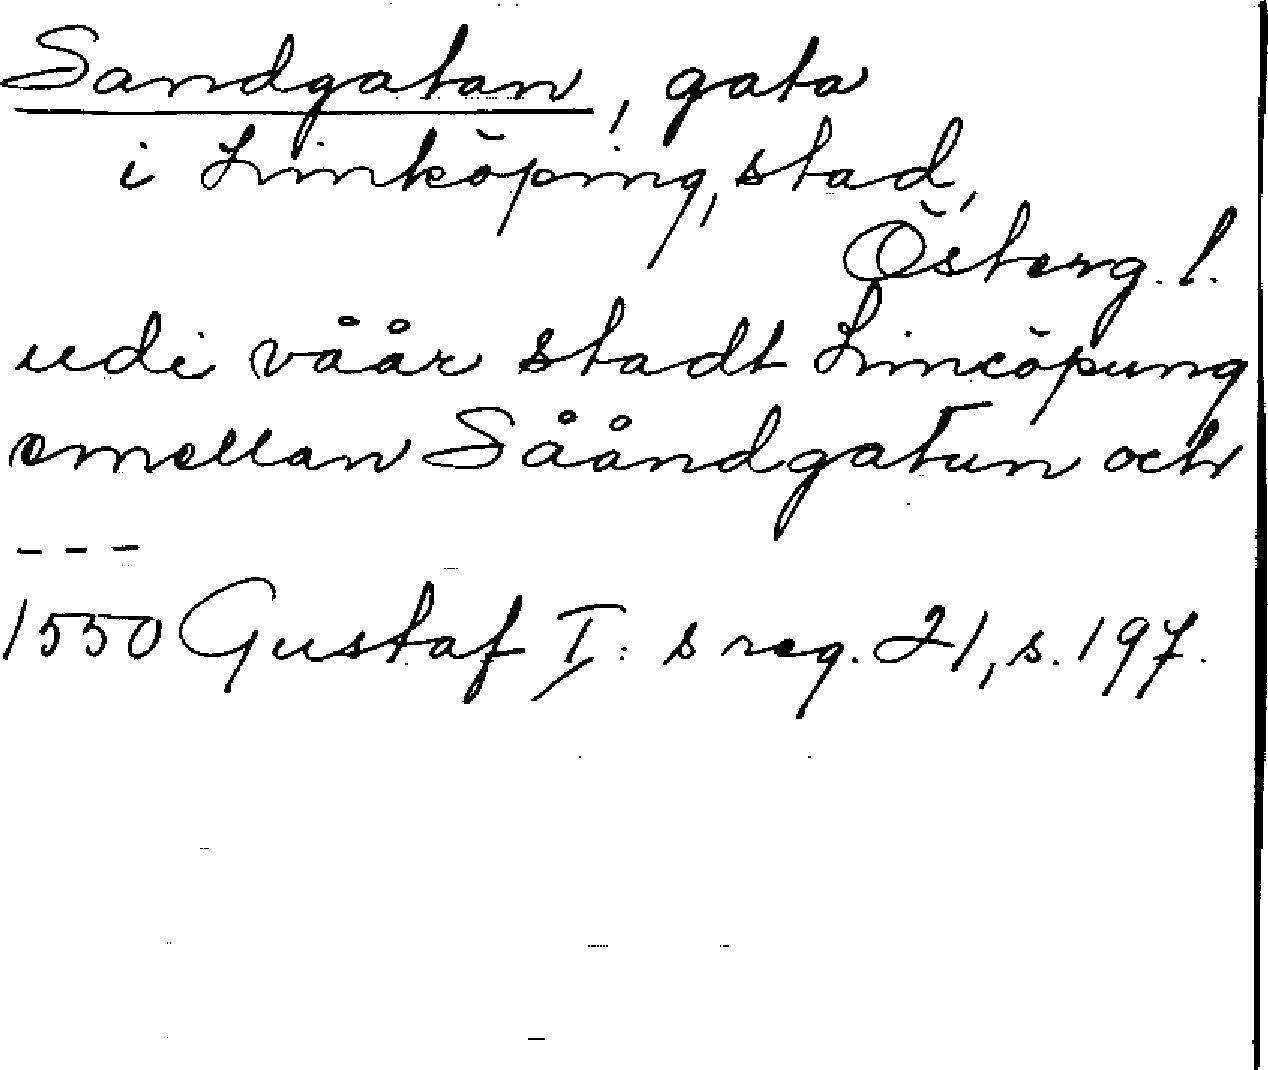 Sandgatan, gata
i Linköping, stad,
Österg. l.
udi våår stadt Lincöpung
emellan Sååndgatun och
---
1550 Gustaf I: s reg. 21, s. 197.